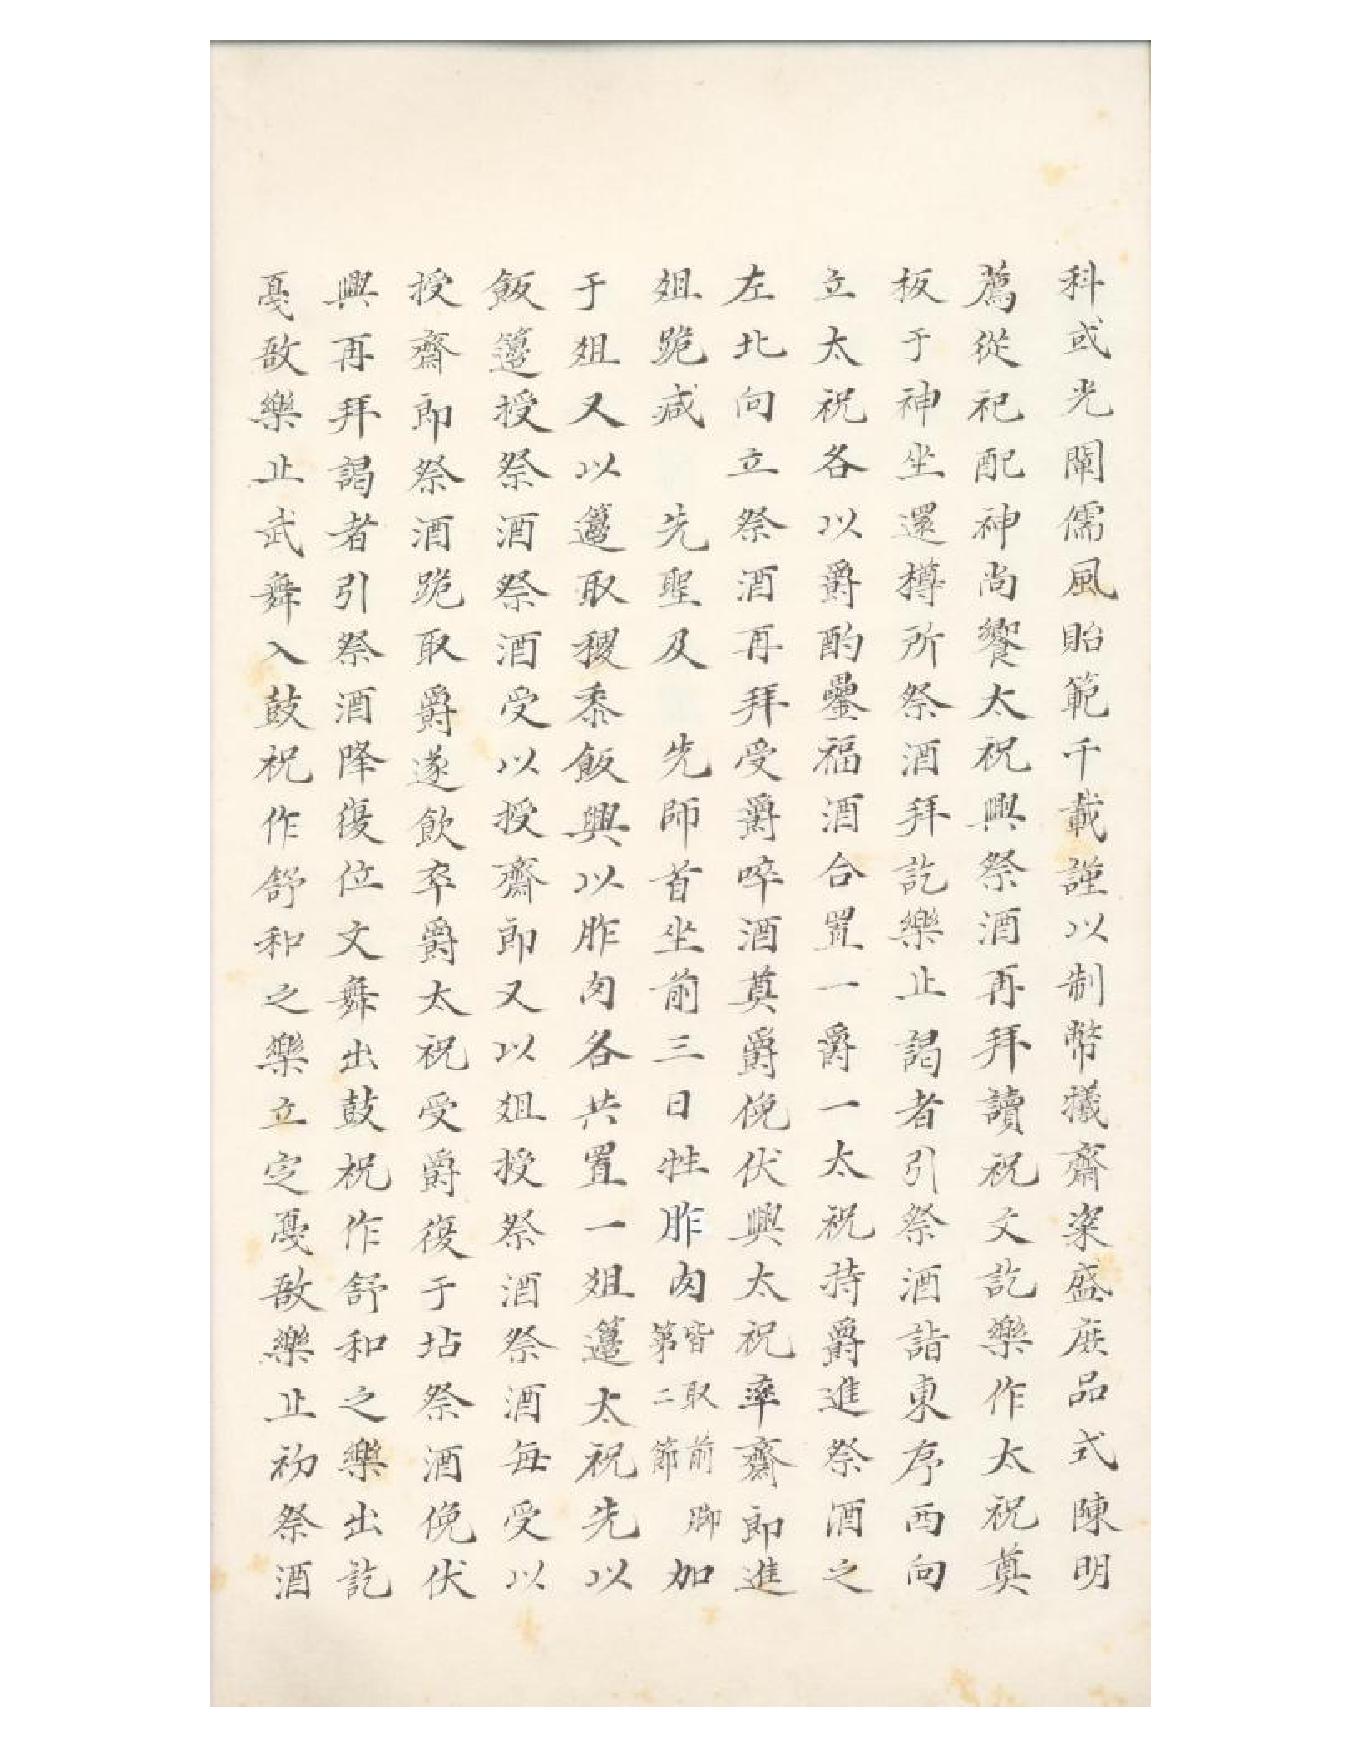 科或光闡儒風貽範千載謹以制幣犠齋粢盛庶品式陳明
薦從祀配神尚饗太祝興祭酒再拜讀祝文訖樂作太祝奠
板于神坐還樽所祭酒拜訖樂止謁者引祭酒詣東序西向
立太祝各以爵酌罍福酒合置一爵一太祝持爵進祭酒之
左北向立祭酒再拜受爵啐酒奠爵俛伏興太祝率齋郎進
俎跪减 先聖及 先師首坐前三日牲胙肉皆取前脚第二節加
于俎又以籩取稷黍飯興以胙肉各共置一俎籩太祝先以
飯籩授祭酒祭酒受以授齋郎又以俎授祭酒祭酒每受以
授齋郎祭酒跪取爵遂飲卒爵太祝受爵復于坫祭酒俛伏
興再拜謁者引祭酒降復位文舞出鼓柷作舒和之樂出訖
戛敔樂止武舞入鼓柷作舒和之樂立定戛敔樂止初祭酒